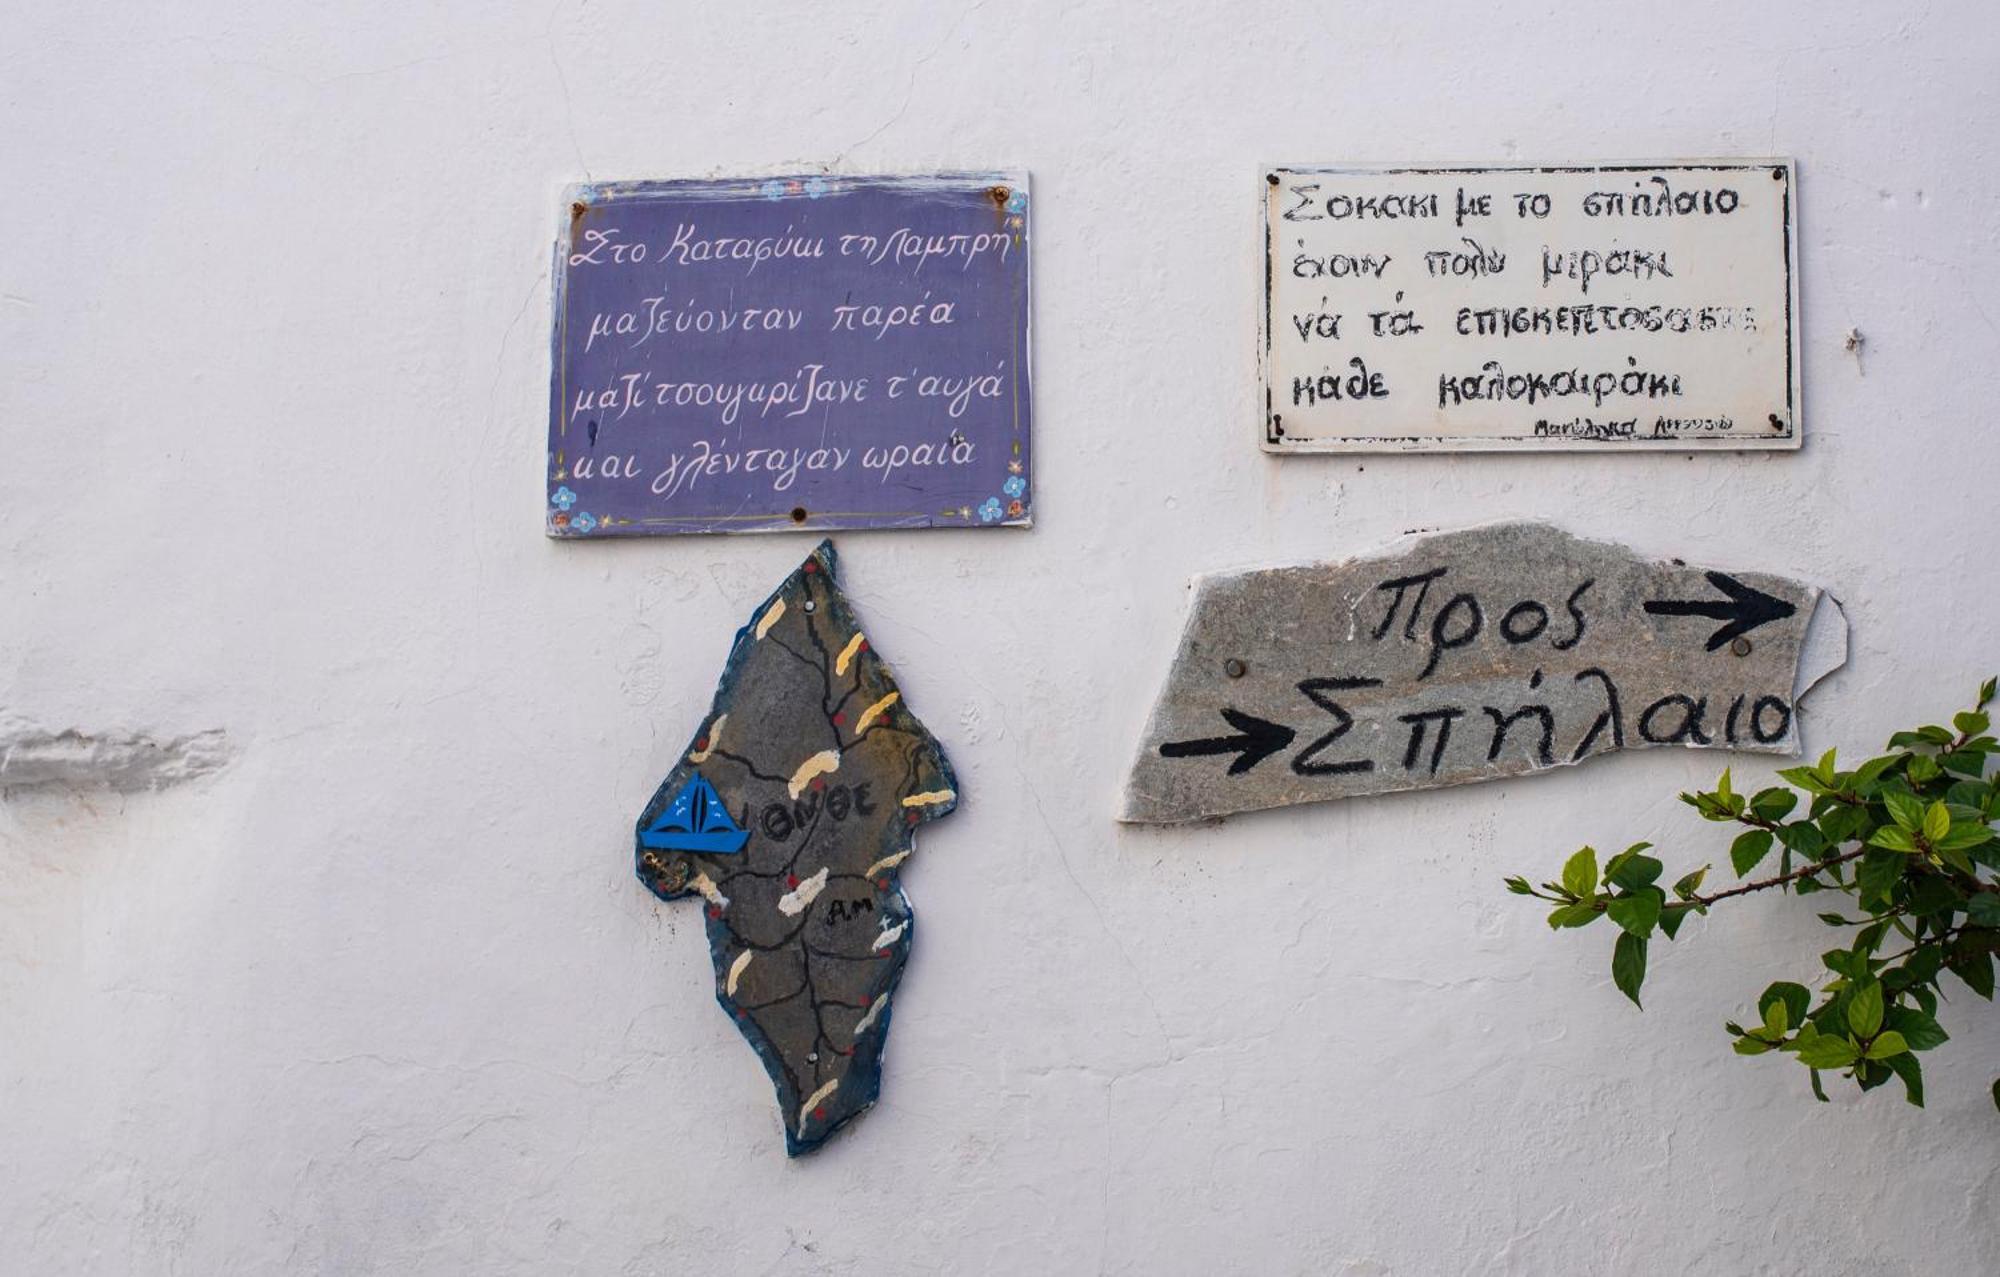 Στο Καταφύκι τη Λαμπρή
μαζεύονταν παρέα
μαζί τσουγκρίζανε τ' αυγά
και γλένταγαν ωραία
Σοκάκι με το σπήλαιο
έχουν πολύ μεράκι
νά τά
κάθε καλοκαιράκι
Πρός →
→ Σπήλαιο
Α.Μ